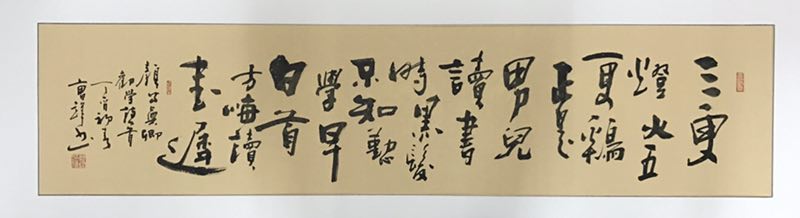 三更
燈火五
更鷄
正是
男兒
讀書
時黑髮
不知勤
學早
白首
方悔讀
書遲
顏真卿
勸學詩首
丁酉